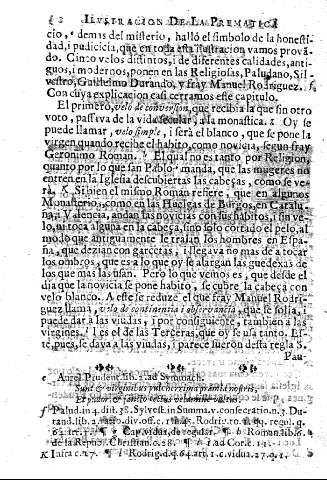 ILUSTRACION DE LA PREMATICA
cio, demas del misterio, halló el simbolo de la honesti-
dad, i pudicicia, que en toda esta ilustracion vamos prova-
do. Cinco velos distintos, i de diferentes calidades, anti-
guos, i modernos, ponen en las Religiosas, Paludano, Sil-
vestro, Guillelmo Durando, y fray Manuel Rodriguez. f
Con cuya explicacion casi cerramos este capitulo.
El primero, velo de conversion, que recibia la que sin otro
voto, passava de la vida secular, a la monastica. Oy se
puede llamar, velo simple, i será el blanco, que se pone la
virgen quando recibe el habito, como novicia, segun fray
Geronimo Roman. El qual no es tanto por Religion,
quanto por lo que san Pablo manda, que las mugeres no
entren en la Iglesia descubiertas las cabeças, como se ve-
ra. K Si bien el mismo Roman refiere, que en algunos
Monasterios, como en las Huelgas de Burgos, en Catalu-
ña, i Valencia, andan las novicias con sus habitos, i sin ve-
lo, ni toca alguna en la cabeça, sino solo cortado el pelo, al
modo que antiguamente le traían los hombres en Espa-
ña, que dezian con garcetas, i llegava no mas de a tocar
los ombros, que es a lo que oy se alargan las guedexas de
los que mas las usan. Pero lo que vemos es, que desde el
dia que la novicia se pone habito, se cubre la cabeça con
velo blanco. A este se reduze el que fray Manuel Rodri-
guez llama, velo de continencia i observancia, que se solia, i
puede dar a las viudas, i por consiguiente, tambien a las
virgines. I es el de las Terceras, que oy se usa tanto. Es-
te, pues, le daya a las viudas, i parece fueron desta regla S.
Pau-
e Aurel. Prudent. lib. 2. ad Symmach.
Sunt & virginibus pulcherrima præmia nostris,
Et pudor, & sancto tectus velamine vultus.
f Palud. in 4. dist. 38. Sylvest. in Summa. v. consecratio. n. 3. Du-
rand. lib. 2. ratio. div. off. c. Rodriq. to. qq. regul. q.
¶ g Cap. vidua, de regular. ¶ h Roman lib.
de la Repub. Christian. c. 28. ¶ i ad Cor. c. 11.
K Infra c. 27. ¶ l Rodrig. d. q. 64. art. 1. c. vidua. 27. q. 1.